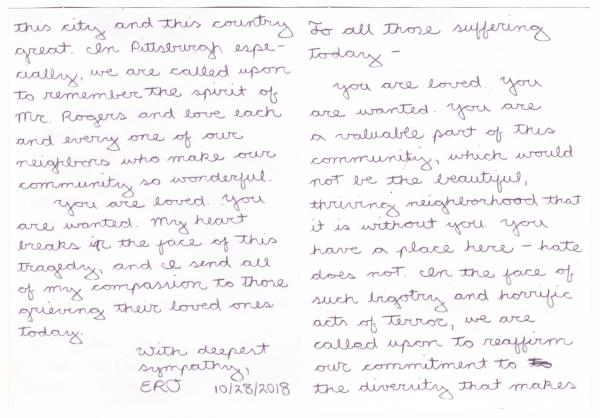 To all those suffering
today –
You are loved. You
are wanted. You are
a valuable part of this
community, which would
not be the beautiful,
thriving neighborhood that
it is without you. You
have a place here – hate
does not. In the face of
such bigotry and horrific
acts of terror, we are
called upon to reaffirm
our commitment to
the diversity that makes
this city and this country
great. In Pittsburgh espe-
cially, we are called upon
to remember the spirit of
Mr. Rogers and love each
and every one of our
neighbors who make our
community so wonderful.
You are loved. You
are wanted. My heart
breaks in the face of this
tragedy, and I send all
of my compassion to those
grieving their loved ones
today.
With deepest
sympathy,
10/28/2018